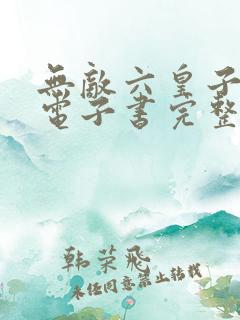 無敵六皇子
電子書完整
韓榮飛
未经同意禁止转载